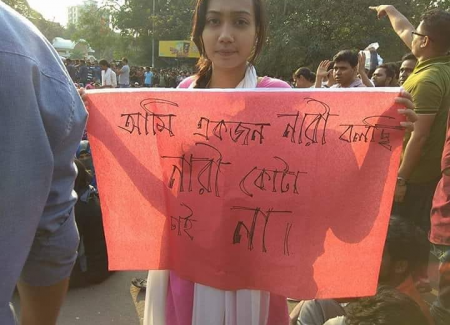 আমি একজন নারী বলছি
নারী কোটা
চাই না।